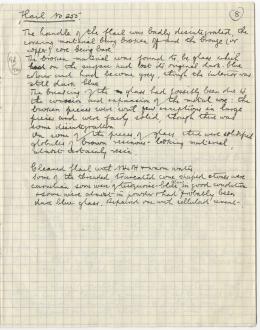 Flail No 255
8
The handle of the flail was badly disintegrated, the
covering material being broken off and the bronze (or
copper) core being bare.
The broken material was found to be glass which
had on the surface lost its original dark blue
colour and had become grey, though the interior was
still dark blue.
The breaking of the glass had possibly been due to
the corrosion and expansion of the metal core. The
broken pieces were with few exceptions in large
pieces and were fairly solid, though there was
some disintegration
On some of the pieces of glass there were solidified
globules of brown resinous-looking material,
almost certainly resin.
Cleaned flail with NH4OH + warm water
Some of the threaded truncated cone shaped stones were
carnelian some were of turquoise-blue in good condition
& some were almost in powder & had probably been
dark blue glass. Repaired one with celluloid cement.